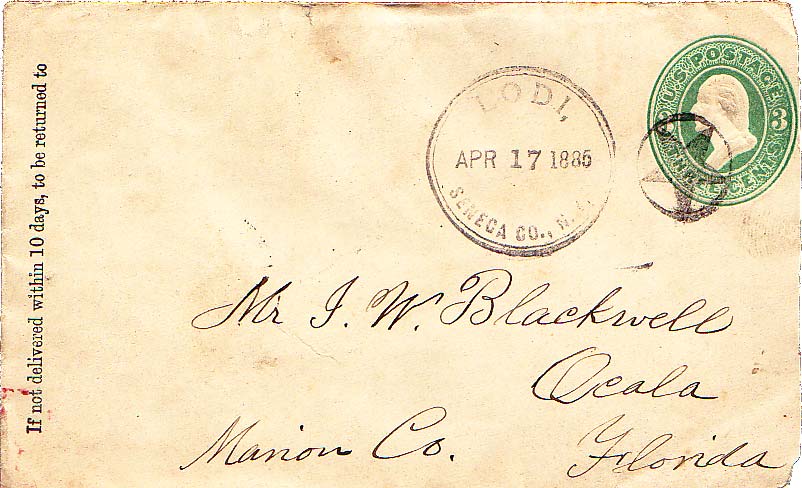 If not delivered within 10 days, to be returned to
LODI,
APR 17 1885
SENECA CO., N.Y.
U.S. POSTAGE
3
THREE CENTS
Mr J. W. Blackwell
Ocala
Marion Co. Florida